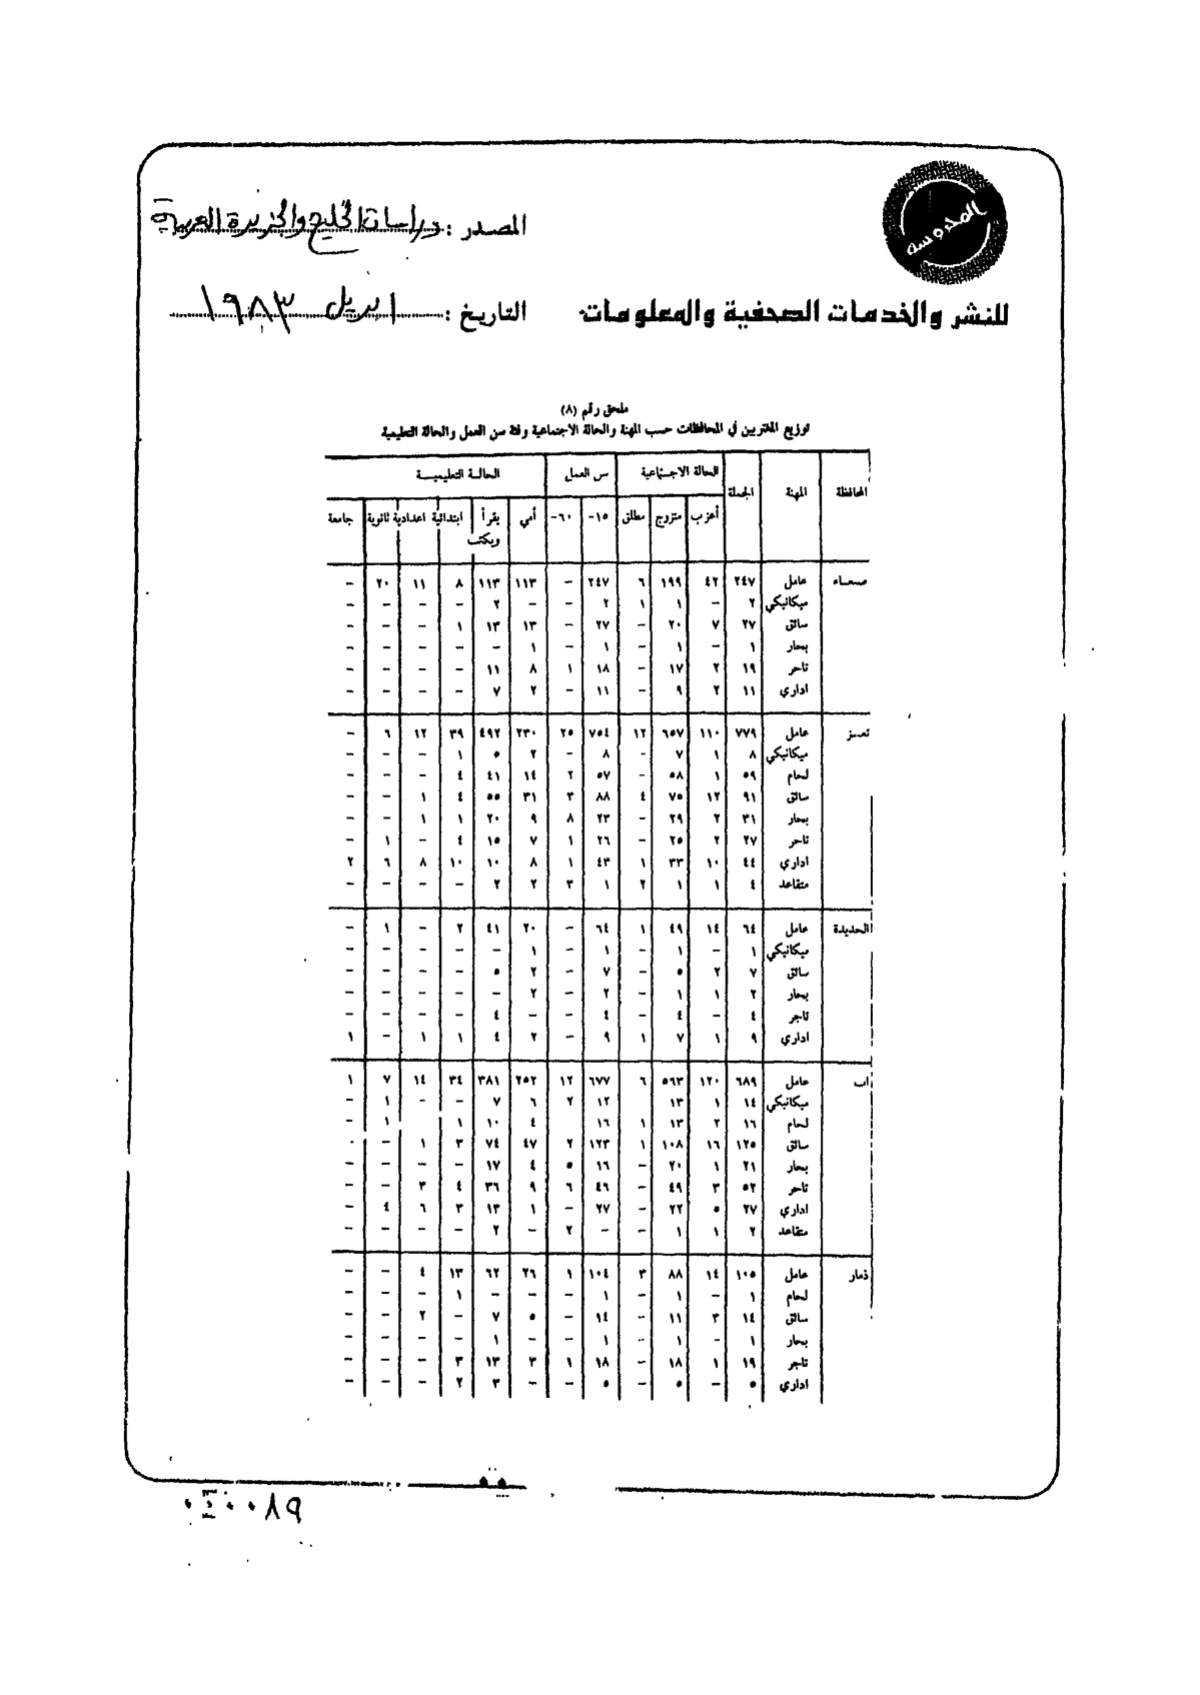 المحروسة
المصدر : دراسات الخليج والجزيرة العربية
للنشر والخدمات الصحفية والمعلومات
التاريخ : ابريل ١٩٨٣
ملحق رقم (٨)
توزيع المغتربين في المحافظات حسب المهنة والحالة الاجتماعية وفئة سن العمل والحالة التعليمية
المحافظة المهنة الجملة الحالة الاجتماعية سن العمل الحالة التعليمية
أعزب متزوج مطلق ١٥- ٦٠- أمي يقرأ ويكتب ابتدائية اعدادية ثانوية جامعة
صنعاء عامل ٢٤٧ ٤٢ ١٩٩ ٦ ٢٤٧ – ١١٣ ١١٣ ٨ ١١ ٢٠ –
ميكانيكي ٢ – ١ ١ ٢ – – ٢ – – – –
سائق ٢٧ ٧ ٢٠ – ٢٧ – ١٣ ١٣ ١ – – –
بحار ١ – ١ – ١ – ١ – – – – –
تاجر ١٩ ٢ ١٧ – ١٨ ١ ٨ ١١ – – – –
اداري ١١ ٢ ٩ – ١١ – ٢ ٧ – – – –
تعز عامل ٧٧٩ ١١٠ ٦٥٧ ١٢ ٧٥٤ ٢٥ ٢٣٠ ٤٩٢ ٣٩ ١٢ ٦ –
ميكانيكي ٨ ١ ٧ – ٨ – ٢ ٥ ١ – – –
لحام ٥٩ ١ ٥٨ – ٥٧ ٢ ١٤ ٤١ ٤ – – –
سائق ٩١ ١٢ ٧٥ ٤ ٨٨ ٣ ٣١ ٥٥ ٤ ١ – –
بحار ٣١ ٢ ٢٩ – ٢٣ ٨ ٩ ٢٠ ١ ١ – –
تاجر ٢٧ ٢ ٢٥ – ٢٦ ١ ٧ ١٥ ٤ – ١ –
اداري ٤٤ ١٠ ٣٣ ١ ٤٣ ١ ٨ ١٠ ١٠ ٨ ٦ ٢
متقاعد ٤ ١ ١ ٢ ١ ٣ ٢ ٢ – – – –
الحديدة عامل ٦٤ ١٤ ٤٩ ١ ٦٤ – ٢٠ ٤١ ٢ – ١ –
ميكانيكي ١ – ١ – ١ – ١ – – – – –
سائق ٧ ٢ ٥ – ٧ – ٢ ٥ – – – –
بحار ٢ ١ ١ – ٢ – ٢ – – – – –
تاجر ٤ – ٤ – ٤ – – ٤ – – – –
اداري ٩ ١ ٧ ١ ٩ – ٢ ٤ ١ ١ – ١
اب عامل ٦٨٩ ١٢٠ ٥٦٣ ٦ ٦٧٧ ١٢ ٢٥٢ ٣٨١ ٣٤ ١٤ ٧ ١
ميكانيكي ١٤ ١ ١٣ ١٢ ٢ ٦ ٧ – – ١ –
لحام ١٦ ٢ ١٣ ١ ١٦ ٤ ١٠ ١ ١ –
سائق ١٢٥ ١٦ ١٠٨ ١ ١٢٣ ٢ ٤٧ ٧٤ ٣ ١ –
بحار ٢١ ١ ٢٠ – ١٦ ٥ ٤ ١٧ – – – –
تاجر ٥٢ ٣ ٤٩ – ٤٦ ٦ ٩ ٣٦ ٤ ٣ – –
اداري ٢٧ ٥ ٢٢ – ٢٧ – ١ ١٣ ٣ ٦ ٤ –
متقاعد ٢ ١ ١ – – ٢ – ٢ – – – –
ذمار عامل ١٠٥ ١٤ ٨٨ ٣ ١٠٤ ١ ٢٦ ٦٢ ١٣ ٤ – –
لحام ١ – ١ – ١ – – – ١ – – –
سائق ١٤ ٣ ١١ – ١٤ – ٥ ٧ – ٢ – –
بحار ١ – ١ – ١ – – ١ – – – –
تاجر ١٩ ١ ١٨ – ١٨ ١ ٣ ١٣ ٣ – – –
اداري ٥ – ٥ – ٥ – – ٣ ٢ – – –